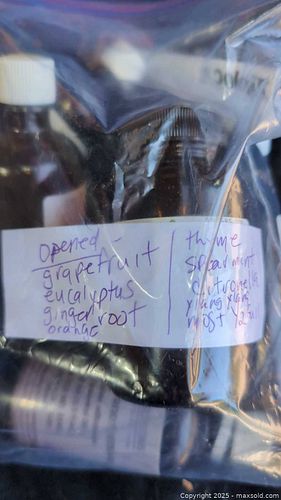 opened -
grapefruit
eucalyptus
ginger root
orange
thyme
spearmint
citronella
ylang ylang
most 1/2 full
Copyright 2025 - maxsold.com